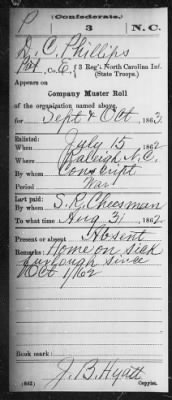 P (Confederate.)
3 N.C.
L. C. Phillips
Pvt, Co. E, 3 Reg't, North Carolina Inf.
(State Troops.)
Appears on
Company Muster Roll
of the organization named above,
for Sept & Oct, 1863.
Enlisted:
When July 15, 1862
Where Raleigh N.C.
By whom Conscript
Period War
Last paid:
By whom S. R. Cheesman
To what time Aug 31, 1862
Present or absent Absent
Remarks: Home on sick
furlough since
Oct 1/62
Book mark:
J. B. Hyatt
(642) Copyist.